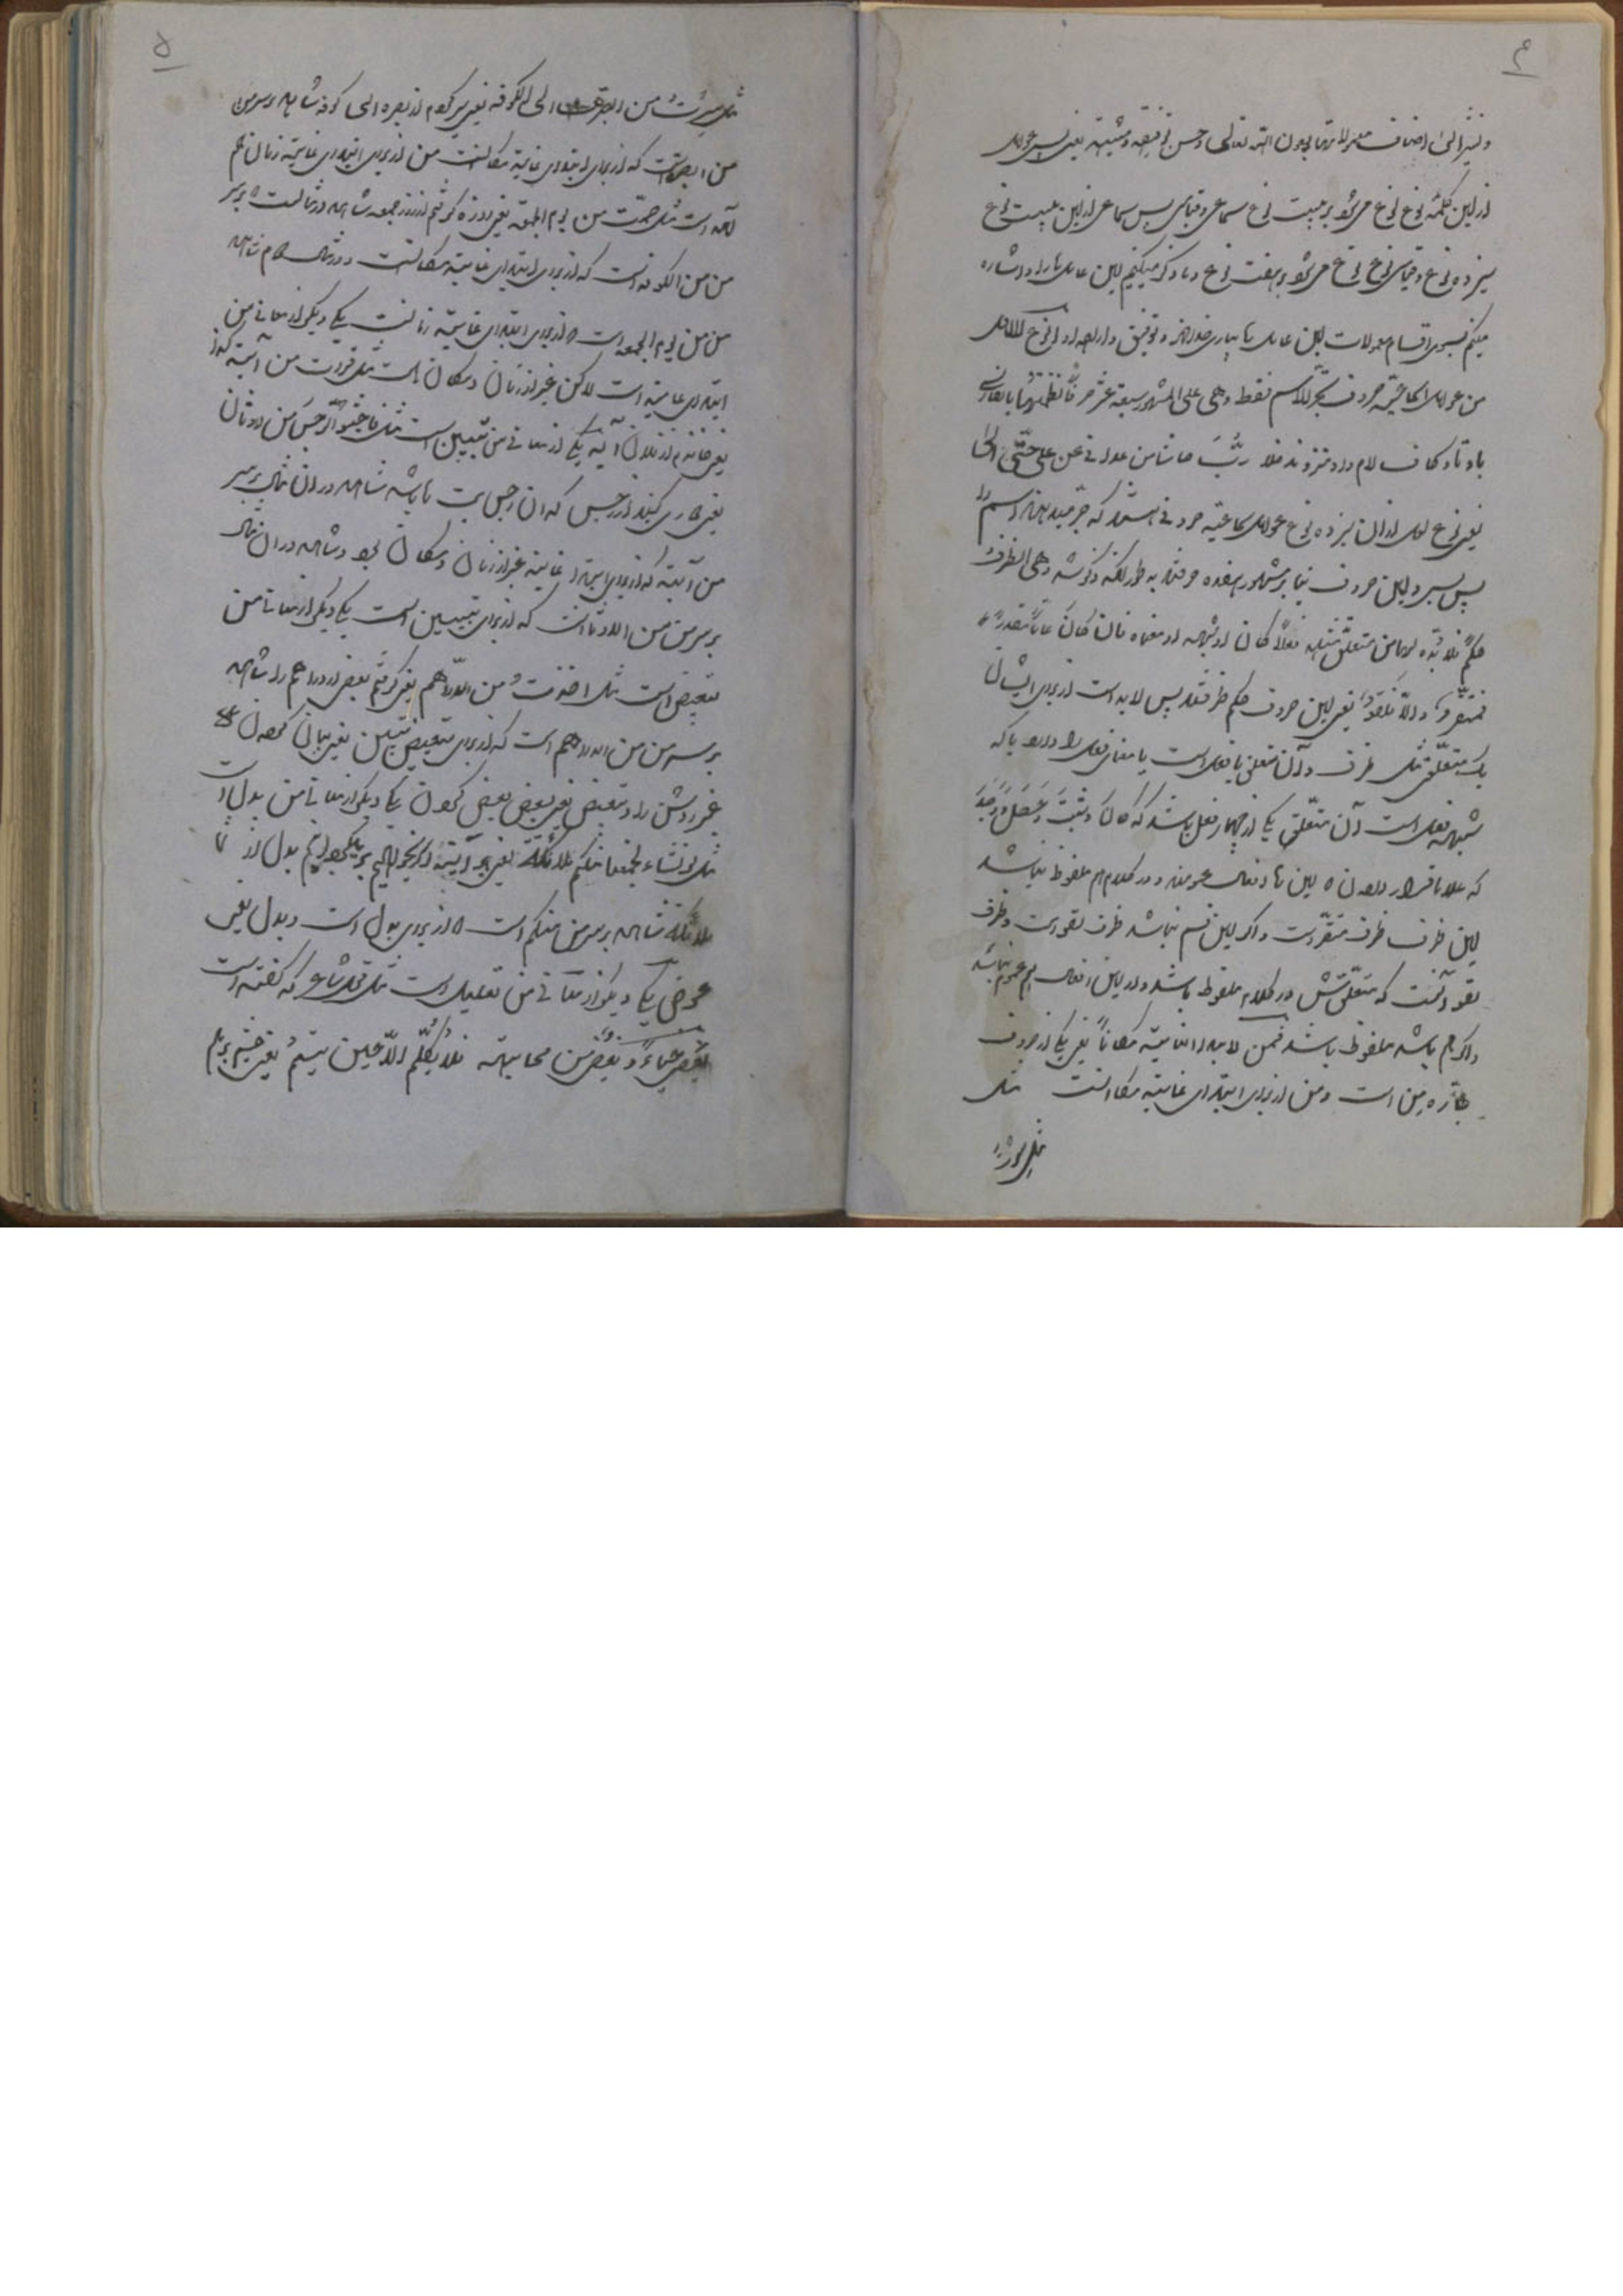 ۴
و نشیر الی اصناف معمولاتها بعون الله تعالی و حسن توفیقه و مشیته یعنی پس عوامل
از این کلمه نوع نوع می‌شود بر بیست نوع سماعی و قیاسی پس سماعی از این بیست نوع
سیزده نوع و قیاسی نوع نوع می‌شود بر هفت نوع و ما ذکر میکنیم این عاملها را و اشاره
میکنم بسوی اقسام معمولات این عاملها بیاری خدا و توفیق و اراده او النوع الاول
من عوامل السماعیة حروف تجر الاسم فقط و هی علی المشهور سبعة عشر حرفاً نظمتها بالفارسی
باو تاو کاف لام واو منذ و مذ خلا رب حاشا من عدا فی عن علی حتی الی
یعنی نوع اول از آن سیزده نوع عوامل سماعیه حروفی هستند که جر میدهند اسم را
پس بس و این حروف بنا بر مشهور هفده حرفند به طور که گذشته و هی الظرف
حکم فلا بد لها من متعلق فعلاً کان او شبهه او معناه فان کان عاماً مقدراً
فمستقر و الا فلغو یعنی این حروف حکم ظرفند پس لابد است از برای ایشان
یک متعلق مثل ظرف و آن متعلق یا فعل است یا معنای فعل را دارد یا که
شبهه فعل است آن متعلق یکی از چهار فعل باشد که کان و ثبت و حصل و وجد
که علما قرار داده‌اند این‌ها را افعال عموم و در کلام هم ملفوظ نباشد
این ظرف ظرف مستقر است و اگر این قسم نباشد ظرف لغو است و ظرف
لغو آنست که متعلقش در کلام ملفوظ باشد و از این افعال هم عموم نباشد
و اگر هم باشد ملفوظ باشد فمن لابتداء الغایة مکاناً یعنی یکی از حروف
جاره من است و من از برای ابتدای غایة مکانست مثل
مثل سرت
۵
مثل سرت من البصرة الی الکوفه یعنی سیر کردم از بصره الی کوفه شاهد بر سر من
من البصره است که از برای ابتدای غایة مکانست من از برای ابتدای غایة زمان هم
آمده است مثل صمت من یوم الجمعة یعنی روزه گرفتم از روز جمعه شاهد در مثال است بر سر
من من الکوفه است که از برای ابتدای غایة مکانست و در مثال دوم شاهد
من من یوم الجمعه است از برای ابتدای غایة زمانست یکی دیگر از معانی من
ابتدای غایة است لاکن غیر از زمان و مکان است مثل قرأت من آیة کذا
یعنی خواندم از فلان آیه یکی از معانی من تبیین است مثل فاجتنبوا الرجس من الاوثان
یعنی دوری کنید از رجس که آن رجس بت‌ها باشد شاهد در آن مثال بر سر
من آیة که از برای ابتداء غایة غیر از زمان و مکان بود و شاهد در این مثال
بر سر من من الاوثان است که از برای تبیین است یکی دیگر از معانی من
تبعیض است مثل اخذت من الدراهم یعنی گرفتم بعض از دراهم را شاهد
بر سر من من الدراهم است که از برای تبعیض تبیین یعنی بیان کردن
غیر روشن را و تبعیض یعنی بعض بعض کردن یکی دیگر از معانی من بدل است
مثل لو نشاء لجعلنا منکم ملائکة یعنی هر آینه اگر بخواهیم بدل از شما
ملائکه شاهد بر سر من منکم است از برای بدل است و بدل یعنی
عوض یکی دیگر از معانی من تعلیل است مثل قول شاعر که گفته است
یغضی حیاءً و یغضی من مهابته فلا یکلم الا حین یبتسم یعنی چشم بر هم